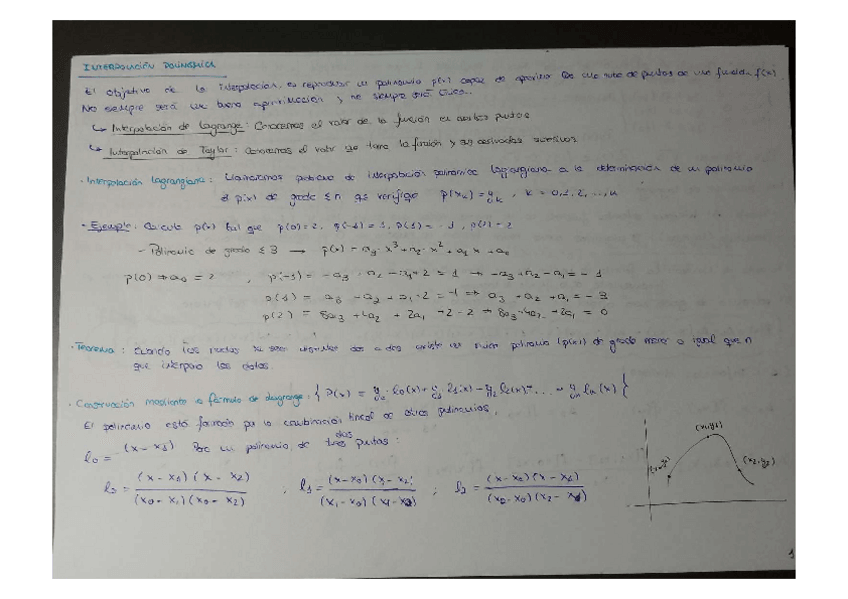 INTERPOLACIÓN POLINÓMICA
El objetivo de la interpolación, es reproducir un polinomio p(x) capaz de aproximar una nube de puntos de una función f(x).
No siempre será una buena aproximación y no siempre será única.
↳ Interpolación de Lagrange: Conocemos el valor de la función en ciertos puntos
↳ Interpolación de Taylor: Conocemos el valor que toma la función y sus derivadas sucesivas.
· Interpolación lagrangiana: Llamaremos problema de interpolación polinómica lagrangiana a la determinación de un polinomio
p(x) de grado ≤ n que verifique p(x_k) = y_k, k = 0, 1, 2, ..., n
· Ejemplo: Calcula p(x) tal que p(0)=2, p(-1)=1, p(1)=-1, p(2)=2
- Polinomio de grado ≤ 3 → p(x) = a₃·x³ + a₂·x² + a₁x + a₀
p(0) → a₀ = 2 , p(-1) = -a₃ + a₂ - a₁ + 2 = 1 → -a₃ + a₂ - a₁ = -1
p(1) = a₃ + a₂ + a₁ + 2 = -1 → a₃ + a₂ + a₁ = -3
p(2) = 8a₃ + 4a₂ + 2a₁ + 2 = 2 → 8a₃ + 4a₂ + 2a₁ = 0
· Teorema: Cuando los nodos x_k sean distintos dos a dos existe un único polinomio (p(x)) de grado menor o igual que n
que interpola los datos.
· Construcción mediante la fórmula de Lagrange. { P(x) = y₀·l₀(x) + y₁·l₁(x) + y₂ l₂(x) + ... + y_n l_n(x) }
El polinomio está formado por la combinación lineal de otros polinomios.
l₀ = (x - x₁) Para un polinomio de tres puntos:
dos
l₀ = (x - x₁)(x - x₂) / (x₀ - x₁)(x₀ - x₂) , l₁ = (x - x₀)(x - x₂) / (x₁ - x₀)(x₁ - x₂) ; l₂ = (x - x₀)(x - x₁) / (x₂ - x₀)(x₂ - x₁)
(x₁,y₁)
(x₂,y₂)
1